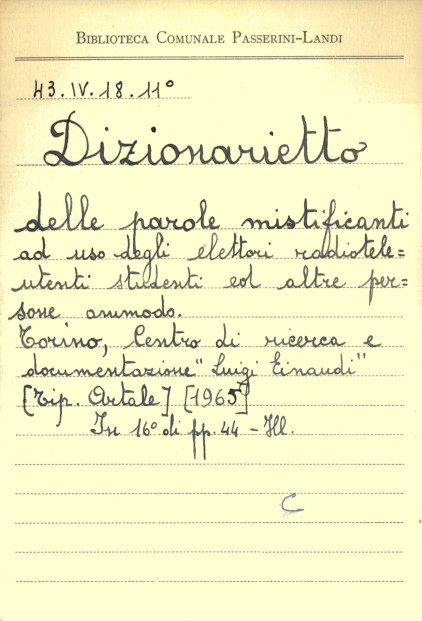 BIBLIOTECA COMUNALE PASSERINI-LANDI
43.IV.18.11°
Dizionarietto
delle parole mistificanti
ad uso degli elettori radiotele=
utenti studenti ed altre per=
sone ammodo.
Torino, Centro di ricerca e
documentazione "Luigi Einaudi"
[Tip. Artale] [1965]
In 16° di pp. 44 - Ill.
C